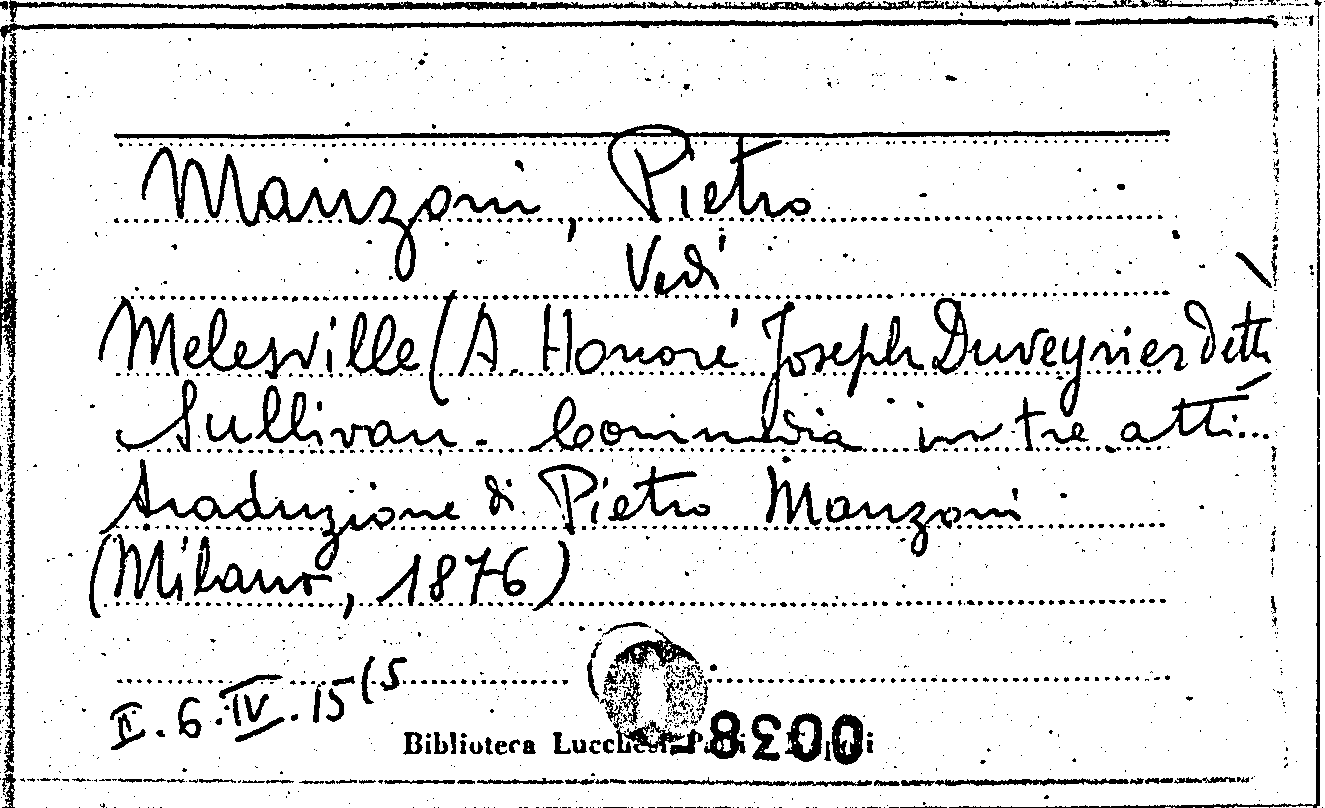 Manzoni, Pietro
Vedi
Melesville (A. Honoré Joseph Duveyrier dett
Sullivan - Commedia in tre atti...
traduzione di Pietro Manzoni
(Milano, 1876)
II.6.IV.15(5
Biblioteca